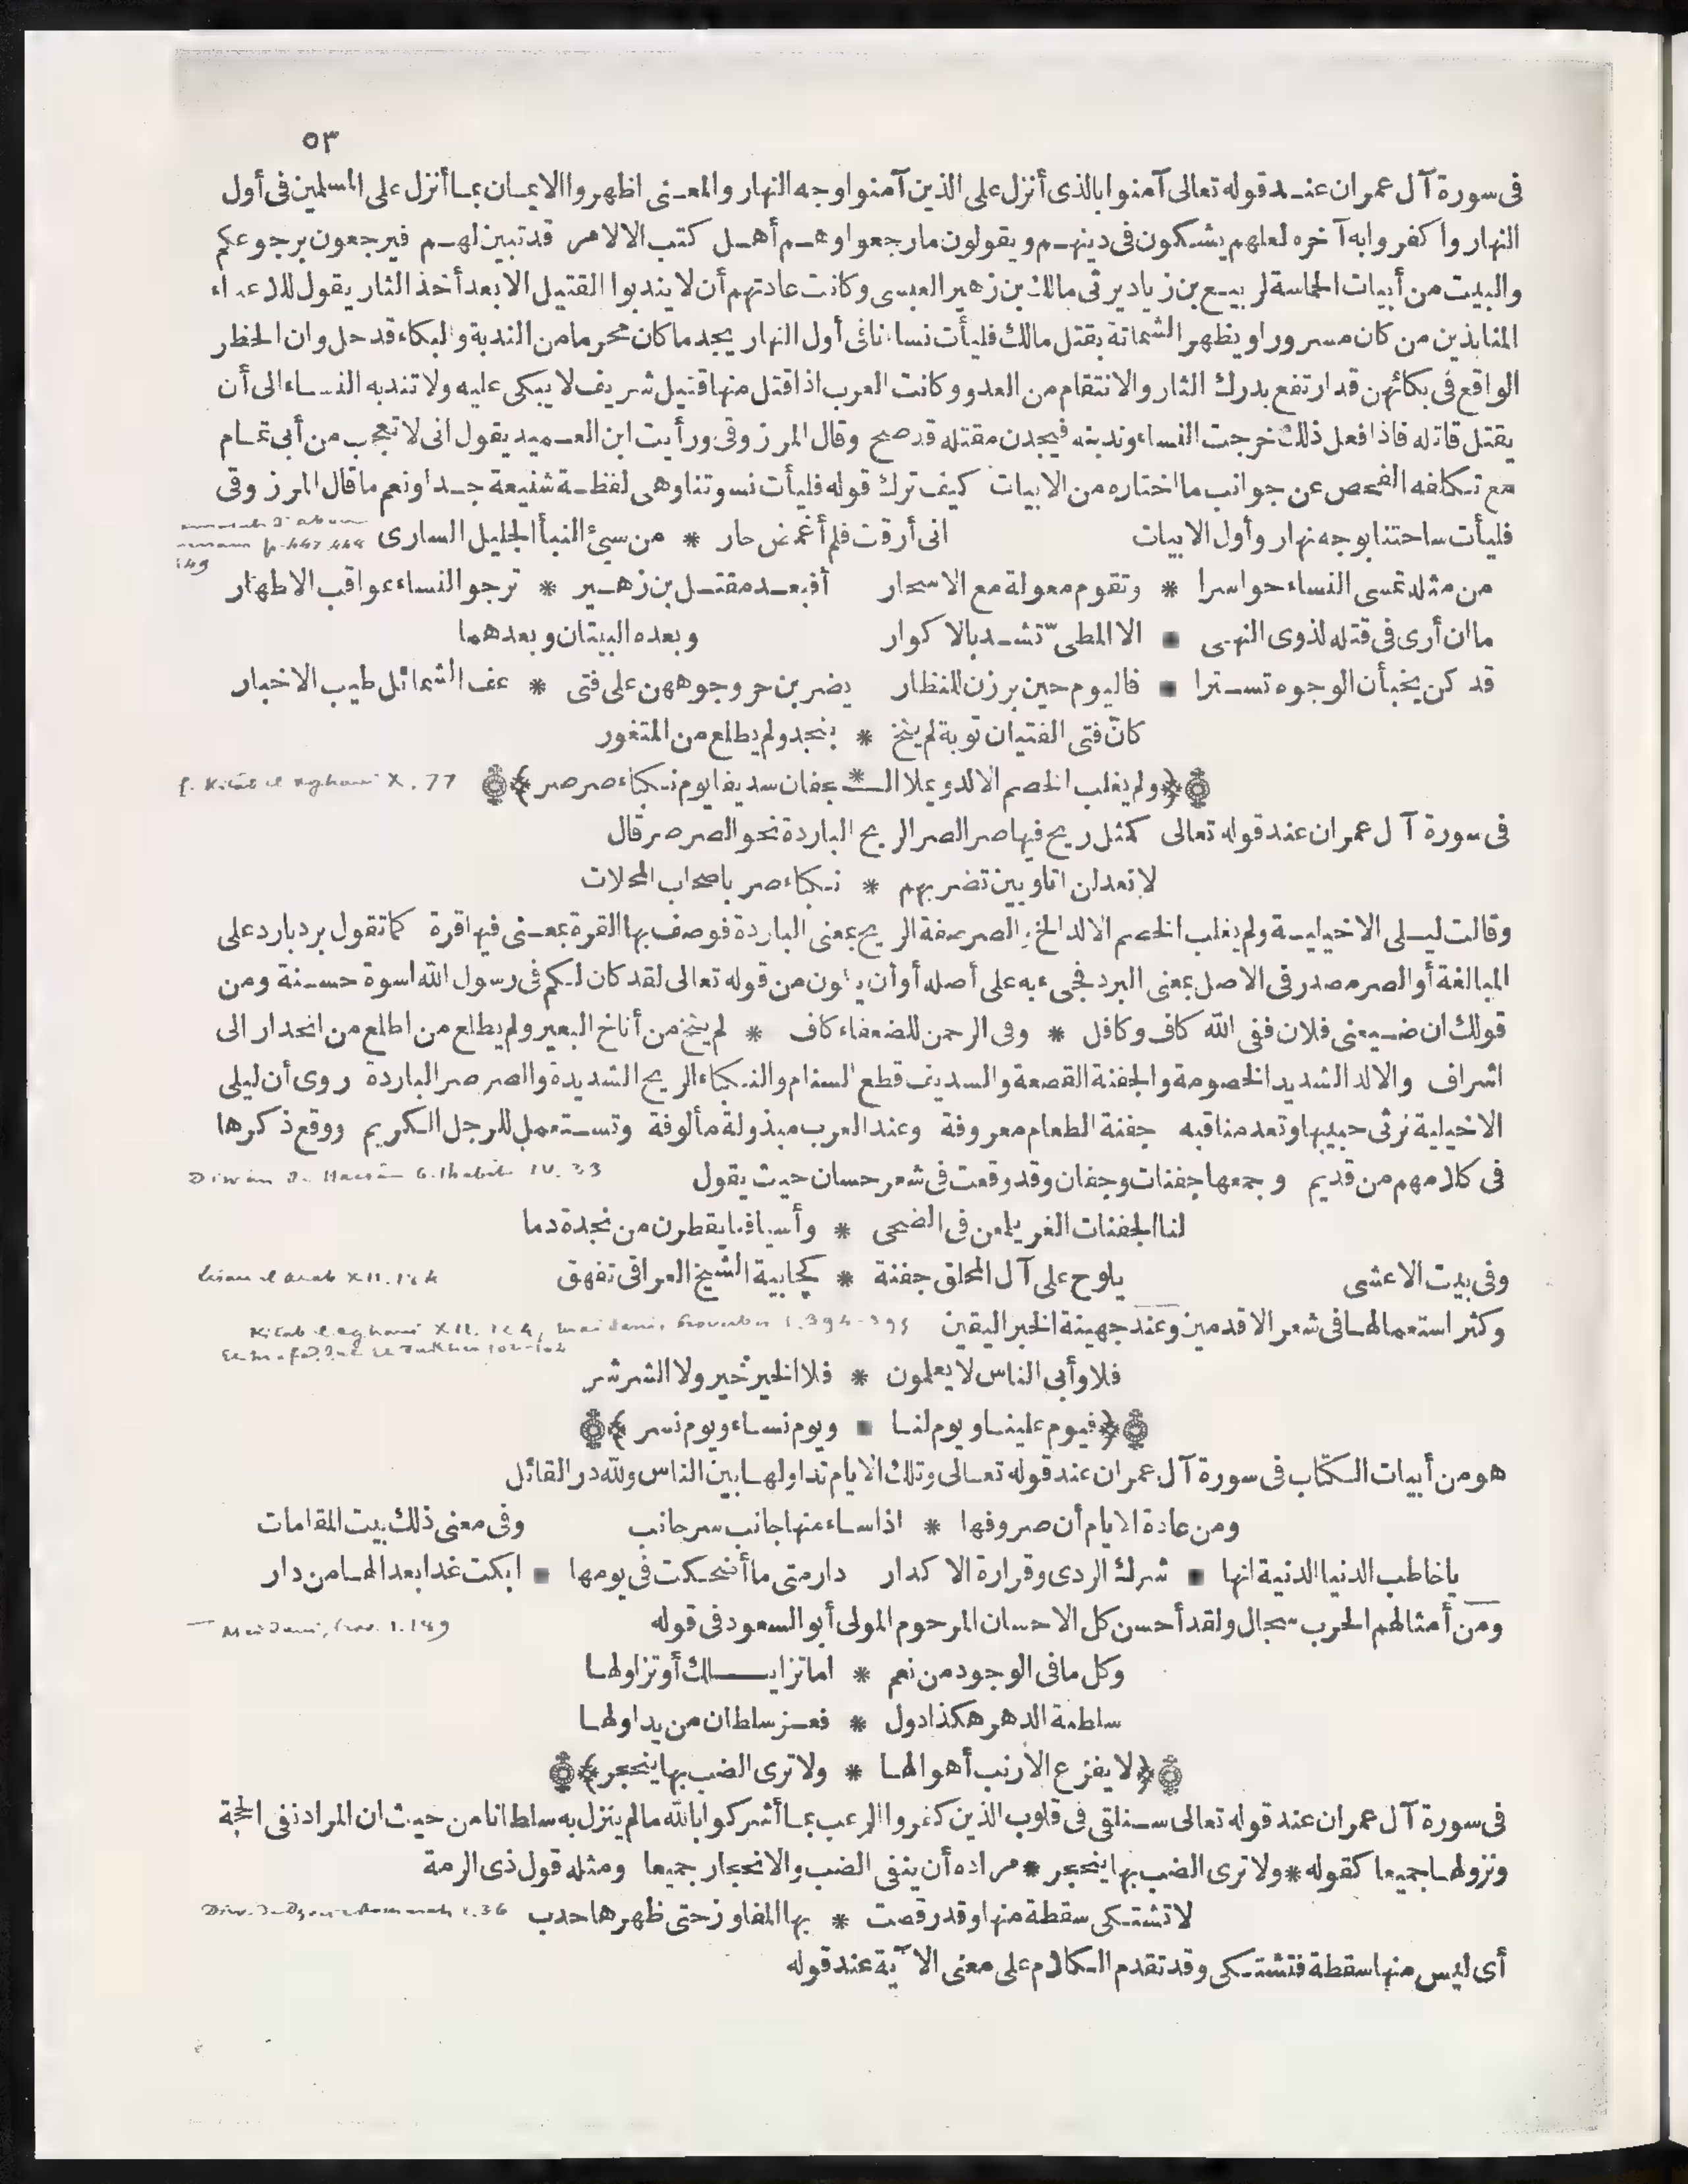 ٥٣
فى سورة آل عمران عند قوله تعالى آمنوا بالذى أنزل على الذين آمنوا وجه النهار والمعنى اظهروا الايمان بما أنزل على المسلمين فى أول
النهار واكفروا به آخره لعلهم يشكون فى دينهم ويقولون مارجعوا وهم أهل كتب الالامر قد تبين لهم فيرجعون برجوعكم
والبيت من أبيات الحماسة لربيع بن زياد يرثى مالك بن زهير العبسى وكانت عادتهم أن لا يندبوا القتيل الا بعد أخذ الثار يقول للاعداء
المنابذين من كان مسرورا ويظهر الشماتة بقتل مالك فليأت نساءنا فى أول النهار يجد ما كان محرما من الندبة والبكاء قد حل وان الحظر
الواقع فى بكائهن قد ارتفع بدرك الثار والانتقام من العدو وكانت العرب اذا قتل منها قتيل شريف لا يبكى عليه ولا تندبه النساء الى أن
يقتل قاتله فاذا فعل ذلك خرجت النساء وندبنه فيجدن مقتله قد صح وقال المرزوقى ورأيت ابن العميد يقول انى لا تعجب من أبى تمام
مع تكلفه الفحص عن جوانب ما اختاره من الابيات كيف ترك قوله فليأت نسوتنا وهى لفظة شنيعة جدا ونعم ما قال المرزوقى
فليأت ساحتنا بوجه نهار وأول الابيات انى أرقت فلم أغمض حار * من سيئ النبأ الجليل السارى
من مثله تمسى النساء حواسرا * وتقوم معولة مع الاسحار أفبعد مقتل بن زهير * ترجو النساء عواقب الاطهار
ما ان أرى فى قتله لذوى النهى * الا المطىّ تشد بالاكوار وبعده البيتان وبعدهما
قد كن يخبأن الوجوه تسترا * فاليوم حين برزن للنظار يضربن حر وجوههن على فتى * عف الشمائل طيب الاخبار
كانّ فتى الفتيان توبة لم ينخ * بنجد ولم يطلع من المتغور
﴿ولم يغلب الخصم الالد ويملا الـ * ـجفان سديفا يوم نكباء صرصر﴾ f. Kitâb el Aghani X. 77
فى سورة آل عمران عند قوله تعالى كمثل ريح فيها صر الصر الريح الباردة نحو الصرصر قال
لا تعدلن اتاويين تضربهم * نكباء صر باصحاب المحلات
وقالت ليلى الاخيلية ولم يغلب الخصم الالد الخ الصر صفة الريح بمعنى الباردة فوصف بها القرة بمعنى فيها قرة كما تقول برد بارد على
المبالغة أو الصر مصدر فى الاصل بمعنى البرد فجىء به على أصله أو أن يكون من قوله تعالى لقد كان لكم فى رسول الله اسوة حسنة ومن
قولك ان ضيعنى فلان ففى الله كاف وكافل * وفى الرحمن للضعفاء كاف * لم ينخ من أناخ البعير ولم يطلع من اطلع من انحدار الى
اشراف والالد الشديد الخصومة والجفنة القصعة والسديف قطع السنام والنكباء الريح الشديدة والصرصر الباردة روى أن ليلى
الاخيلية ترثى حبيبها وتعد مناقبه جفنة الطعام معروفة وعند العرب مبذولة مألوفة وتستعمل للرجل الكريم ووقع ذكرها
فى كلامهم من قديم وجمعها جفنات وجفان وقد وقعت فى شعر حسان حيث يقول Diwân d. Hassân b. Thabit IV. 33
لنا الجفنات الغر يلمعن فى الضحى * وأسيافنا يقطرن من نجدة دما
وفى بيت الاعشى يلوح على آل المحلق جفنة * كجابية الشيخ العراقى تفهق Lisan el Arab XII.
وكثر استعمالها فى شعر الاقدمين وعند جهينة الخبر اليقين Kitab el aghani XII. Proverbes 1. 394-395
فلا وأبى الناس لا يعلمون * فلا الخير خير ولا الشر شر
﴿فيوم علينا ويوم لنا * ويوم نساء ويوم نسر﴾
هو من أبيات الكتاب فى سورة آل عمران عند قوله تعالى وتلك الايام نداولها بين الناس ولله در القائل
ومن عادة الايام أن صروفها * اذا ساء منها جانب سر جانب وفى معنى ذلك بيت المقامات
ياخاطب الدنيا الدنية انها * شرك الردى وقرارة الاكدار دار متى ما أضحكت فى يومها * ابكت غدا بعدا لها من دار
ومن أمثالهم الحرب سجال ولقد أحسن كل الاحسان المرحوم المولى أبو السعود فى قوله Meidani, Prov. 1. 149
وكل ما فى الوجود من نعم * اما تزايـــلك أو تزاولها
سلطنة الدهر هكذا دول * فعز سلطان من يداولها
﴿لا يفزع الأرنب أهوالها * ولا ترى الضب بها ينجحر﴾
فى سورة آل عمران عند قوله تعالى سنلقى فى قلوب الذين كفروا الرعب بما أشركوا بالله مالم ينزل به سلطانا من حيث ان المراد نفى الحجة
ونزولها جميعا كقوله * ولا ترى الضب بها ينجحر * مراده أن ينفى الضب والانجحار جميعا ومثله قول ذى الرمة
لا تشتكى سقطة منها وقد رقصت * بها المفاوز حتى ظهرها حدب
أى ليس منها سقطة فتشتكى وقد تقدم الكلام على معنى الآية عند قوله